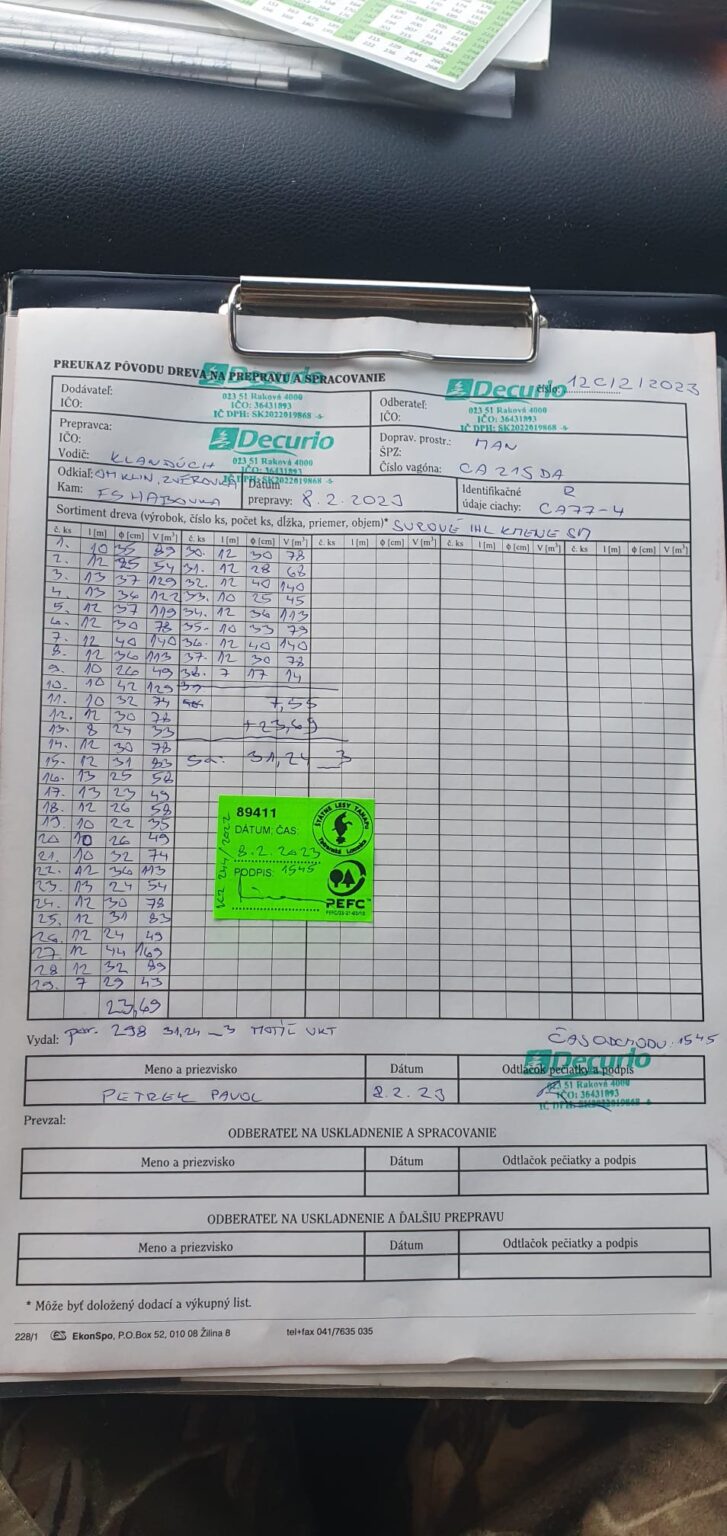 PREUKAZ PÔVODU DREVA NA PREPRAVU A SPRACOVANIE
číslo: 12C/2/2023
Dodávateľ:
IČO:
Decurio
023 51 Raková 4000
IČO: 36431893
IČ DPH: SK2022019868
Odberateľ:
IČO:
Decurio
023 51 Raková 4000
IČO: 36431893
IČ DPH: SK2022019868
Prepravca:
IČO:
Vodič: KLANDÚCH
Decurio
023 51 Raková 4000
IČO: 36431893
Doprav. prostr.: MAN
ŠPZ:
Číslo vagóna: CA 215 DA
Odkiaľ: OM KLIN, ZVEROVKA
Kam: ES HABOVKA
Dátum
prepravy: 8.2.2023
Identifikačné R
údaje ciachy: CA77-4
Sortiment dreva (výrobok, číslo ks, počet ks, dĺžka, priemer, objem)* SUROVÉ IHL KMENE SM
č. ks l [m] ϕ [cm] V [m³] č. ks l [m] ϕ [cm] V [m³] č. ks l [m] ϕ [cm] V [m³] č. ks l [m] ϕ [cm] V [m³] č. ks l [m] ϕ [cm] V [m³]
1. 10 35 89 30. 12 30 78
2. 12 25 54 31. 12 28 68
3. 13 37 129 32. 12 40 140
4. 13 36 122 33. 10 25 45
5. 12 37 119 34. 12 36 113
6. 12 30 78 35. 10 33 79
7. 12 40 140 36. 12 40 140
8. 12 36 113 37. 12 30 78
9. 10 26 49 38. 7 17 14
10. 10 42 129 39
11. 10 32 74 7,55
12. 12 30 78 +23,69
13. 8 24 33
14. 12 30 78
15. 12 31 83 Sa: 31,24 3
16. 13 25 58
17. 13 23 49
18. 12 26 58
19. 10 22 35
20 10 26 49
21. 10 32 74
22. 12 36 113
23. 13 24 54
24. 12 30 78
25. 12 31 83
26. 12 24 49
27 12 44 169
28 12 32 89
29. 7 29 43
23,69
89411
DÁTUM; ČAS:
8.2.2023
PODPIS: 1545
ŠTÁTNE LESY TANAPu
Tatranská Lomnica
PEFC
Vydal: por. 298 31,24 3
ČAS ODCHODU 1545
Meno a priezvisko Dátum Odtlačok pečiatky a podpis
PETREK PAVOL 8.2.23
Decurio
023 51 Raková 4000
IČO: 36431893
IČ DPH: SK2022019868
Prevzal:
ODBERATEĽ NA USKLADNENIE A SPRACOVANIE
Meno a priezvisko Dátum Odtlačok pečiatky a podpis
ODBERATEĽ NA USKLADNENIE A ĎALŠIU PREPRAVU
Meno a priezvisko Dátum Odtlačok pečiatky a podpis
* Môže byť doložený dodací a výkupný list.
228/1 EkonSpo, P.O.Box 52, 010 08 Žilina 8 tel+fax 041/7635 035